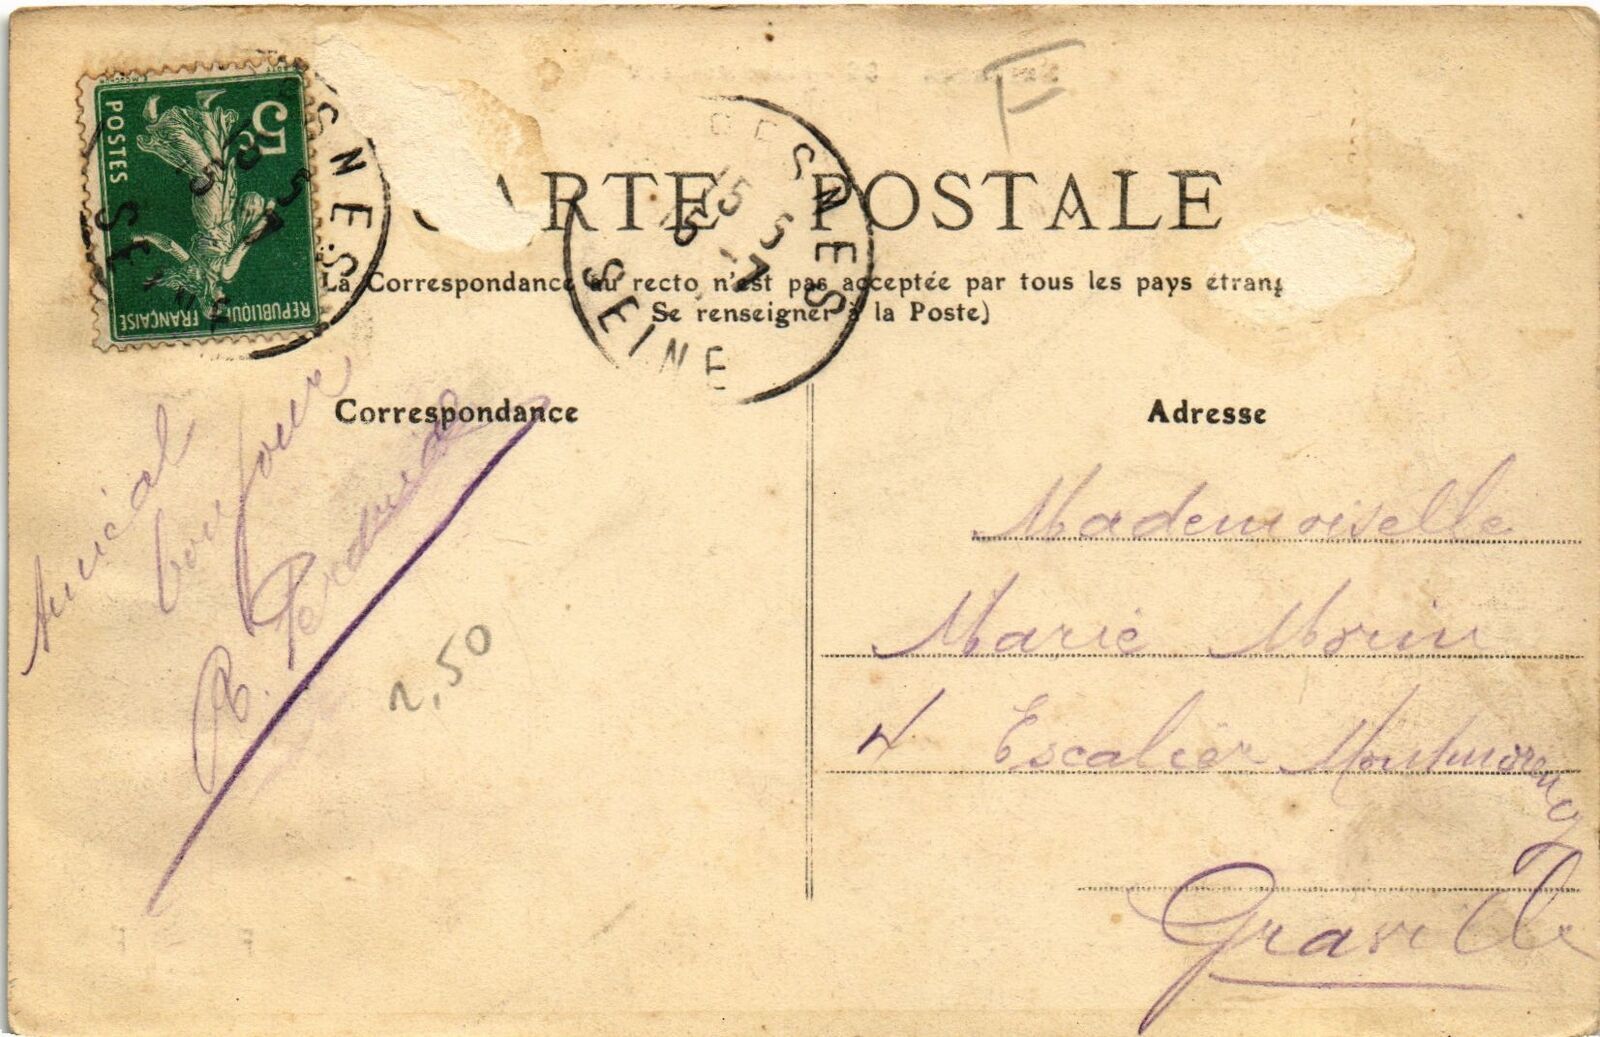 5
POSTES
REPUBLIQUE
FRANÇAISE
GNES
SEINE
CARTE POSTALE
OGNES
15 5
5 - 7
SEINE
La Correspondance au recto n'est pas acceptée par tous les pays étrang
Se renseigner à la Poste)
F
Correspondance
Amical
bonjour
2,50
Adresse
Mademoiselle
Marie Morin
Escalier Montmorency
Graville